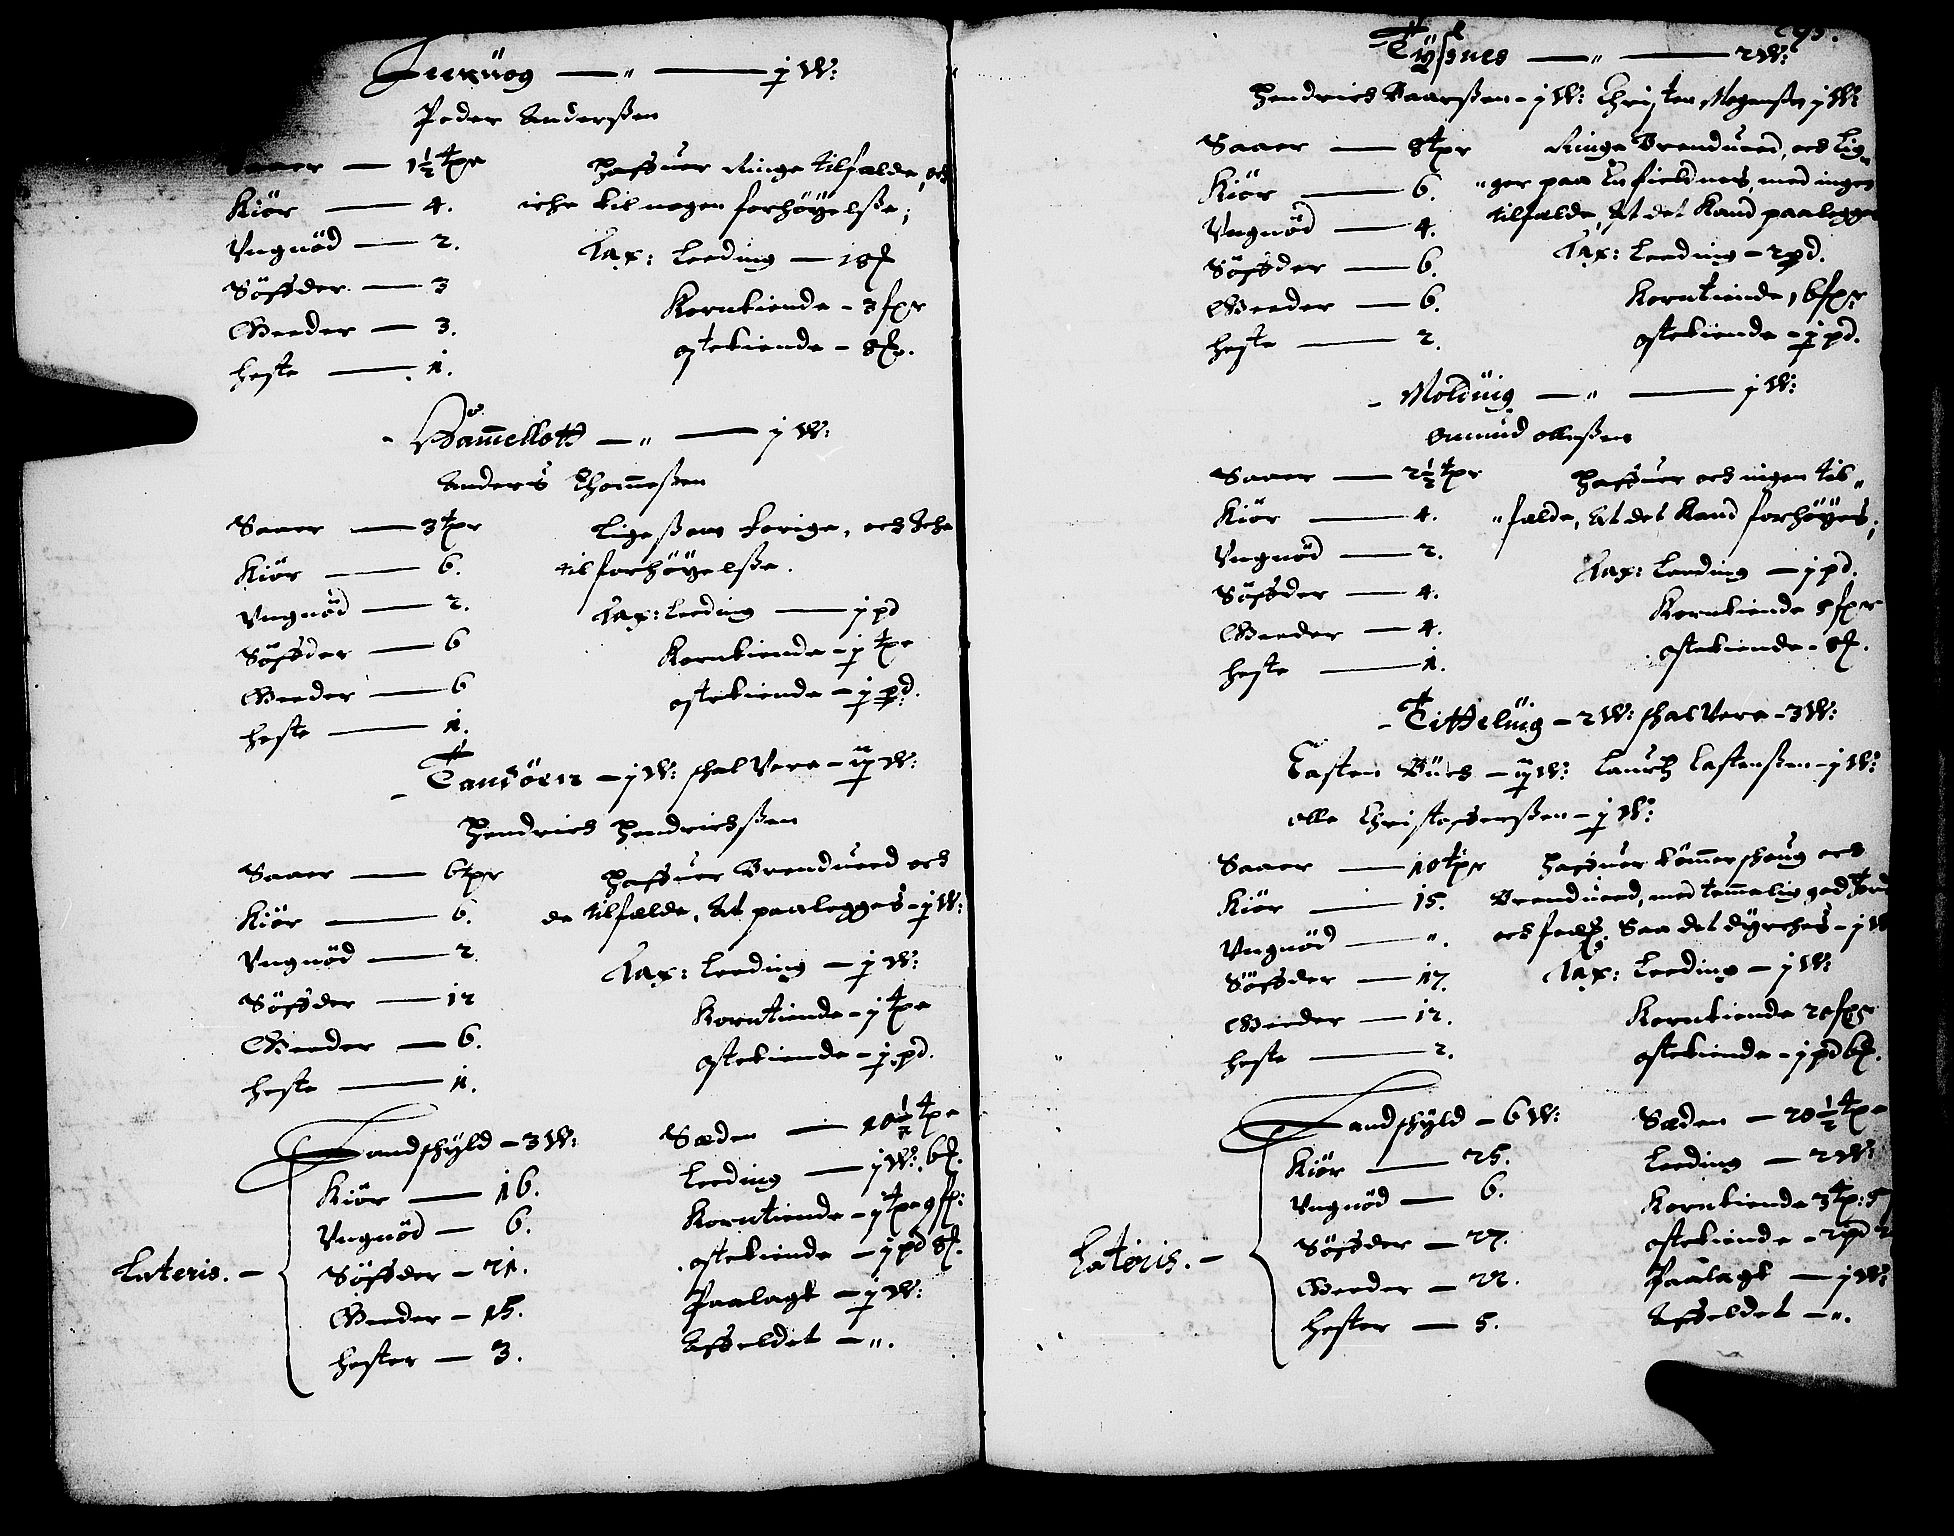 Peder Anderßen
Saaer — 1½ tpr
Kiör — 4.
Vngnöd — 2.
Söffder — 3
Geeder — 3.
heste — 1.
Haffuer Ringe tilfelde, och
iche til nogen forhöyelße;
Tax: Leeding — 18 ℔
Korntiende – 3 fpr
ostetiende – 8 ℔.
Hammellott — „ — j W:
Anders Thommeßen
Saaer — 3 tpr
Kiör — 6.
Vngnöd — 2.
Söffder — 6
Geeder — 6
heste — 1.
Ligeßom forige, och Iche
til forhöyelße.
Tax: Leeding — j pd
Korntiende – j tpe
ostetiende – j pd.
– j W: skal Vere – ij W:
Hendrich Hendrichßen
Saaer — 6 tpr
Kiör — 6.
Vngnöd — 2
Söffder — 12
Geeder — 6.
heste — 1.
Haffuer Brendueed och
de tilfelde, At paalegges – j W:
Tax: Leeding — j W:
Korntiende – j tpe
ostetiende – j pd.
Landskyld – 3 W:
Kiör — 16.
Vngnöd — 6.
Lateris. – Söffder – 21.
Geeder – 15.
hester — 3.
Sæden — 10½ tpe
Leeding — j W: 6 ℔.
Korntiende – j tpe 9 ff:
ostetiende — j pd 8 ℔.
Paalagt — j W:
Affeldet — „.
Tysnes — „ — 2 W:
Hendrich Baarßen – j W: Christen Mogenßen j W:
Saaer — 8 tpr
Kiör — 6.
Vngnöd — 4.
Söffder — 6.
Geeder — 6.
heste — 2.
Ringe Brendueed, och Lig„
„ger paa En fieldnes, med ingen
tilfelde, At det Kand paalegges
Tax: Leeding – 2 pd.
Korntiende, 16 fpr
ostetiende – j pd.
Molduig — „ — j W:
Omund ollußen
Saaer — 2½ tpr
Kiör — 4.
Vngnöd — 2.
Söffder — 4.
Geeder — 4.
heste — 1.
Haffuer och ingen til„
„felde, At det Kand forhöyes;
Tax: Leeding — j pd.
Korntiende 5 fpr
ostetiende – 8 ℔.
Tittelsuig – 2 W: skal Vere – 3 W:
Casten Buch – ij W: Lauritz Castenßen – j W:
olle Christofferßen – j W:
Saaer — 10 tpr
Kiör — 15.
Vngnöd — „.
Söffder — 17.
Geeder — 12.
heste — 2.
Hafuer tömmerskoug och
Brendueed, med temmelig god
Saa det dyrches – j W
Tax: Leeding — j W:
Korntiende 20 fpr
ostetiende – j pd 6 ℔.
Landskyld – 6 W:
Kiör — 25.
Vngnöd — 6.
Lateris. – Söffder — 27.
Geeder – 22.
hester — 5.
Sæden — 20½ tpe
Leeding — 2 W:
Korntiende 3 tp: 5
ostetiende – 2 pd
Paalagt — j W:
Affeldet — „.